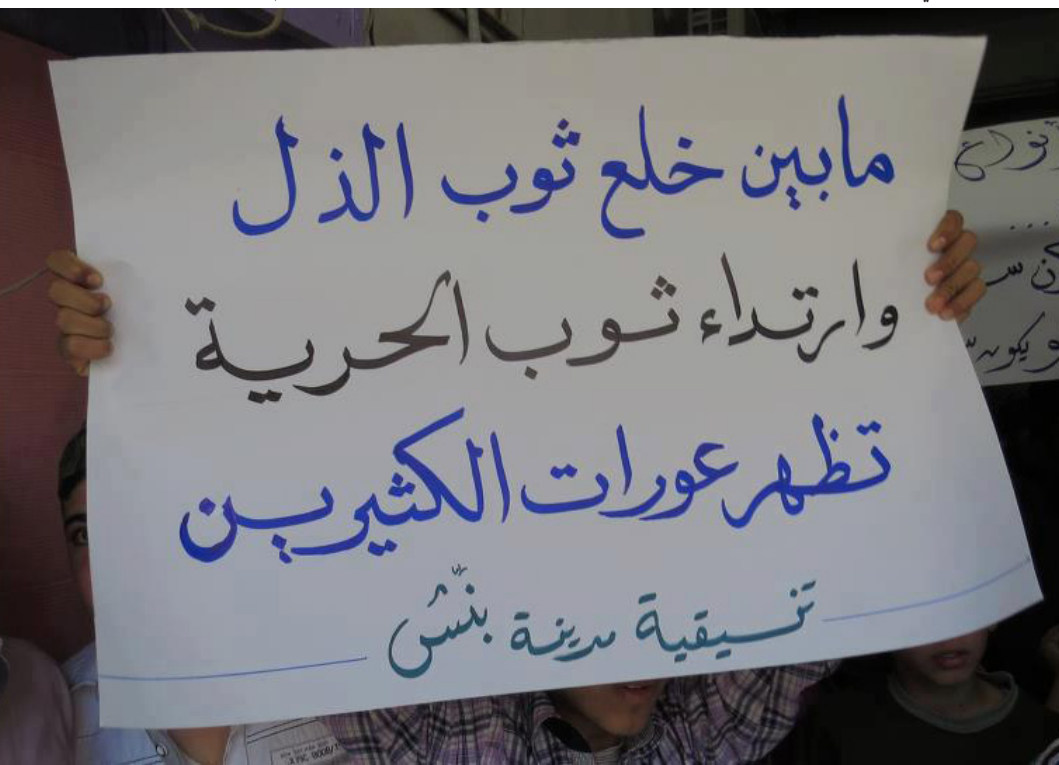 مابين خلع ثوب الذل
وارتداء ثوب الحرية
تظهر عورات الكثيرين
تنسيقية مدينة بنّش